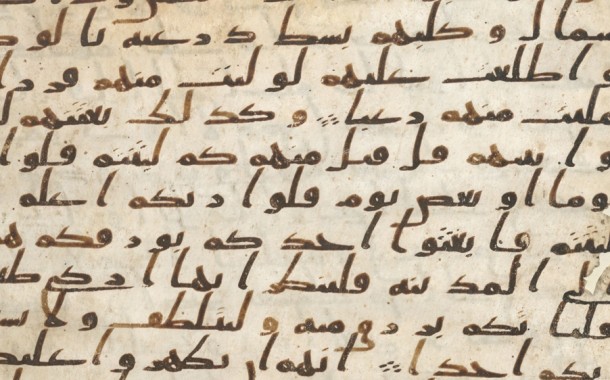 سمال و كلبهم بسط ذرعيه بالو
اطلعت عليهم لوليت منهم فر
ملت منهم رعبا و كذلك بعثنهم
وا بينهم قل قيل منهم كم لبثتم قلوا
يوما او بعض يوم قلوا ربكم اعلم
لبثتم فابعثوا احدكم بورقكم هذ
الى المدينه فلينظر ايها ازكى طعا
فلياتكم برزق منه و ليتلطف و لا يشـ
بكم احدا انهم ان يظهروا عليكـ